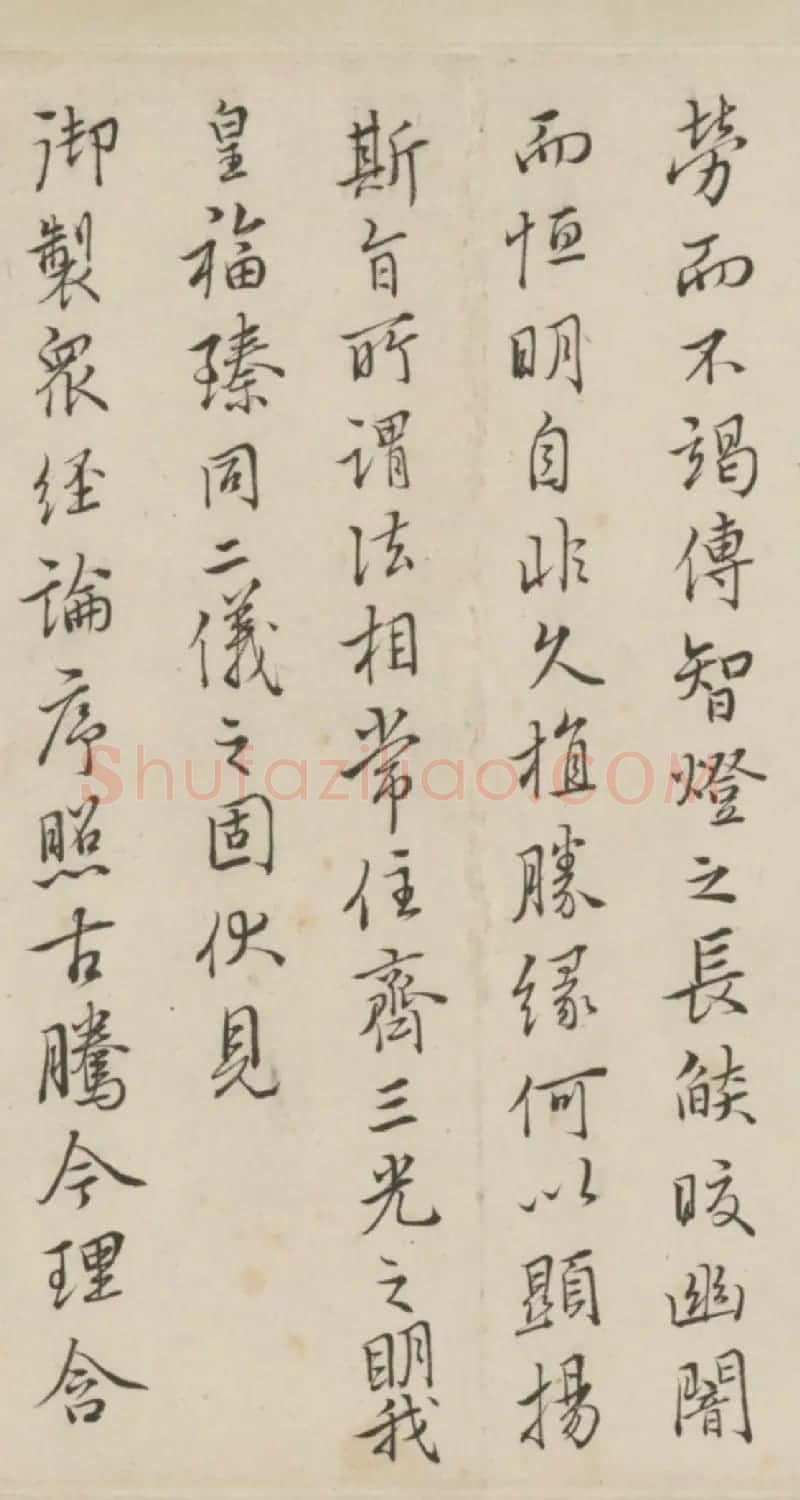 勞而不竭傳智燈之長燄皎幽闇
而恒明自非久植勝緣何以顯揚
斯旨所謂法相常住齊三光之明我
皇福臻同二儀之固伏見
御製眾經論序照古騰今理含
Shufaziliao.COM